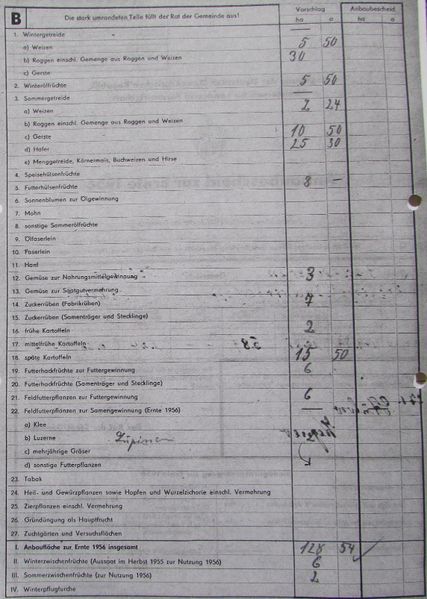 B Die stark umrandeten Teile füllt der Rat der Gemeinde aus! Vorschlag Anbaubescheid
ha a ha a
1. Wintergetreide —
a) Weizen 5 50
b) Roggen einschl. Gemenge aus Roggen und Weizen 30
c) Gerste
2. Winterölfrüchte 5 50
3. Sommergetreide —
a) Weizen 2 24
b) Roggen einschl. Gemenge aus Roggen und Weizen
c) Gerste 10 50
d) Hafer 25 30
e) Menggetreide, Körnermais, Buchweizen und Hirse
4. Speisehülsenfrüchte
5. Futterhülsenfrüchte 3 —
6. Sonnenblumen zur Ölgewinnung
7. Mohn
8. sonstige Sommerölfrüchte
9. Ölfaserlein
10. Faserlein
11. Hanf
12. Gemüse zur Nahrungsmittelgewinnung 3
13. Gemüse zur Saatgutvermehrung
14. Zuckerrüben (Fabrikrüben) 7
15. Zuckerrüben (Samenträger und Stecklinge)
16. frühe Kartoffeln 2
17. mittelfrühe Kartoffeln
18. späte Kartoffeln 15 50
19. Futterhackfrüchte zur Futtergewinnung 6
20. Futterhackfrüchte (Samenträger und Stecklinge)
21. Feldfutterpflanzen zur Futtergewinnung 6
22. Feldfutterpflanzen zur Samengewinnung (Ernte 1956) —
a) Klee
b) Luzerne Lupinen
c) mehrjährige Gräser
d) sonstige Futterpflanzen
23. Tabak
24. Heil- und Gewürzpflanzen sowie Hopfen und Wurzelzichorie einschl. Vermehrung
25. Zierpflanzen einschl. Vermehrung
26. Gründüngung als Hauptfrucht
27. Zuchtgärten und Versuchsflächen
I. Anbaufläche zur Ernte 1956 insgesamt 128 54
II. Winterzwischenfrüchte (Aussaat im Herbst 1955 zur Nutzung 1956) 6
III. Sommerzwischenfrüchte (zur Nutzung 1956) 2
IV. Winterpflugfurche